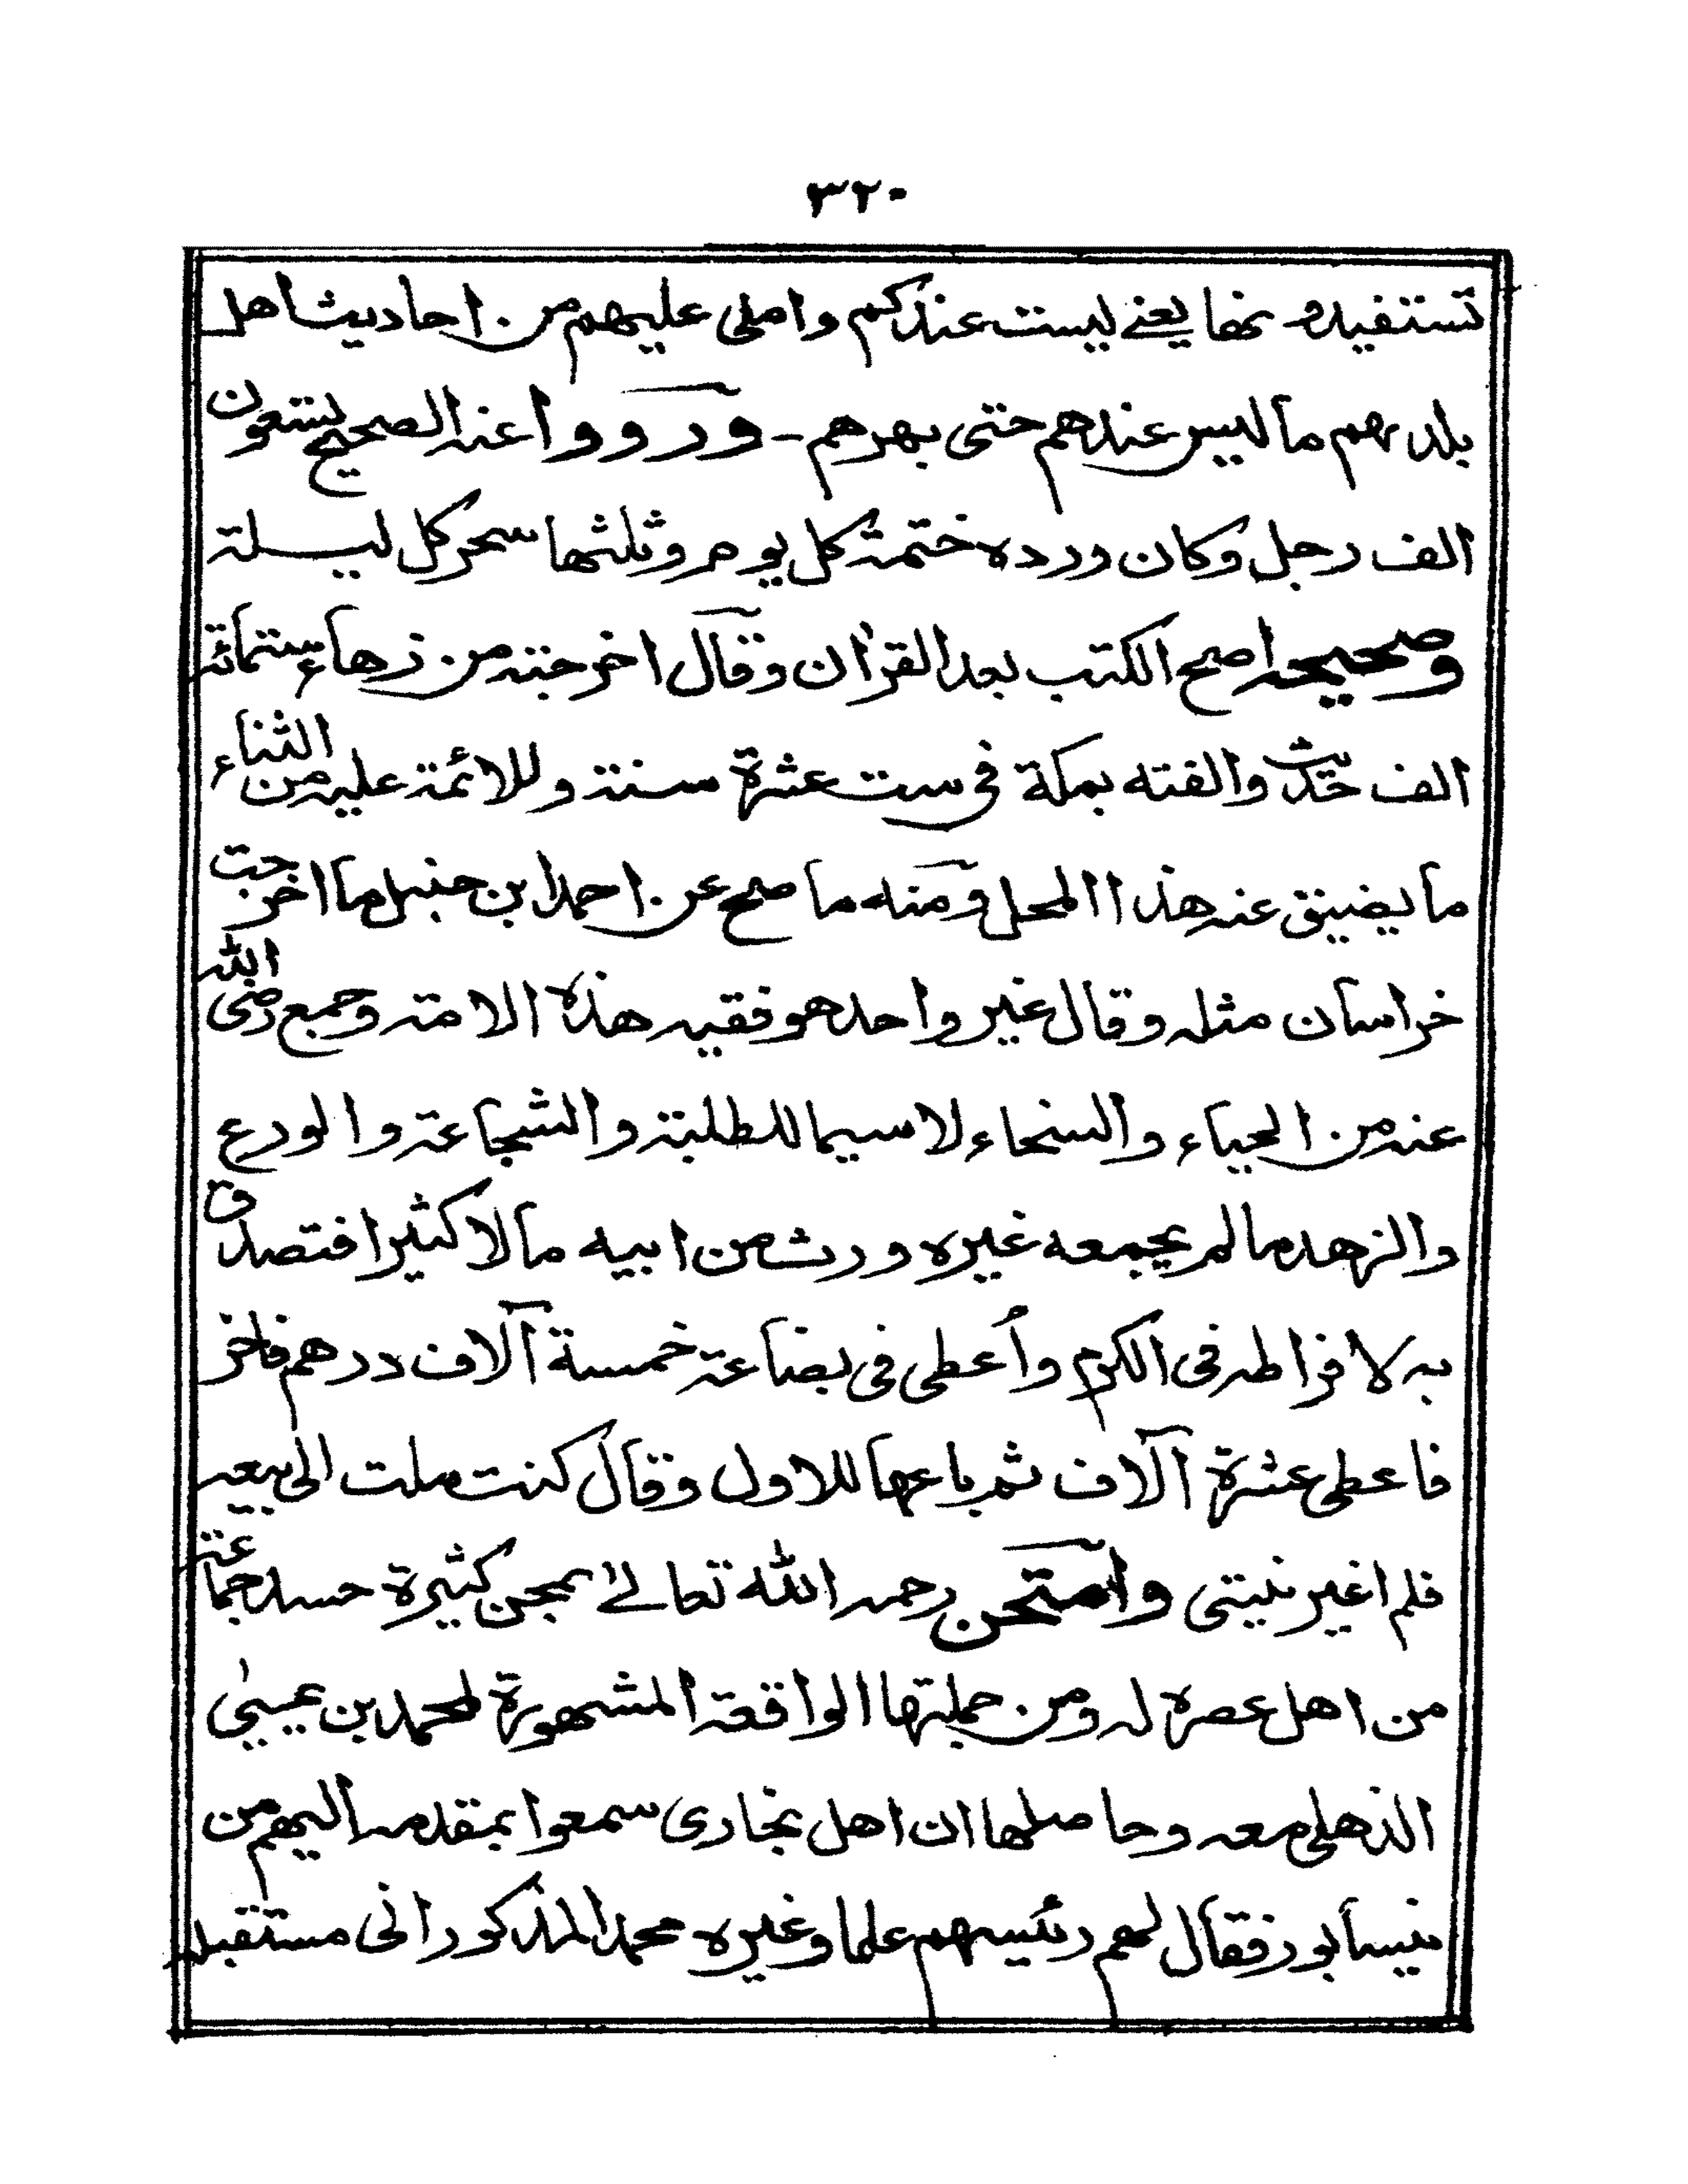 ٣٢٠
تستفيدونها يعنے ليست عندكم واملى عليهم من احاديث اهل
بلدبهم ما ليس عندهم حتى بهرهم - ورووا عنه الصحيح تسعون
الف رجل وكان ورده ختمة كل يوم وثلثها سحر كل ليلة
وصحيحه اصح الكتب بعد القران وقال اخرجته من زهاء ستمائة
الف حديث والفته بمكة فى ست عشرة سنة وللائمة عليه من الثناء
ما يضيق عنه هذا المحل ومنه ما صح عن احمد ابن حنبل ما اخرجت
خراسان مثله وقال غير واحد هو فقيه هذه الامة وجمع رضى الله
عنه من الحياء والسخاء لا سيما للطلبة والشجاعة والورع
والزهد ما لم يجمعه غيره وورث من ابيه مالا كثيرا فتصدق
به لافراطه فى الكرم وأعطى فى بضاعة خمسة آلاف درهم فاخر
فاعطى عشرة آلاف ثم باعها للاول وقال كنت ملت الى بيعه
فلم اغير نيتى وامتحن رحمه الله تعالے بمحن كثيرة حسد جماعة
من اهل عصره له ومن جملتها الواقعة المشهورة لمحمد بن عيسىٰ
الذهلى معه وحاصلها ان اهل بخارى سمعوا بمقدمه اليهم من
نيسابور فقال لهم رئيسهم علما وغيره محمد المذكور انى مستقبله